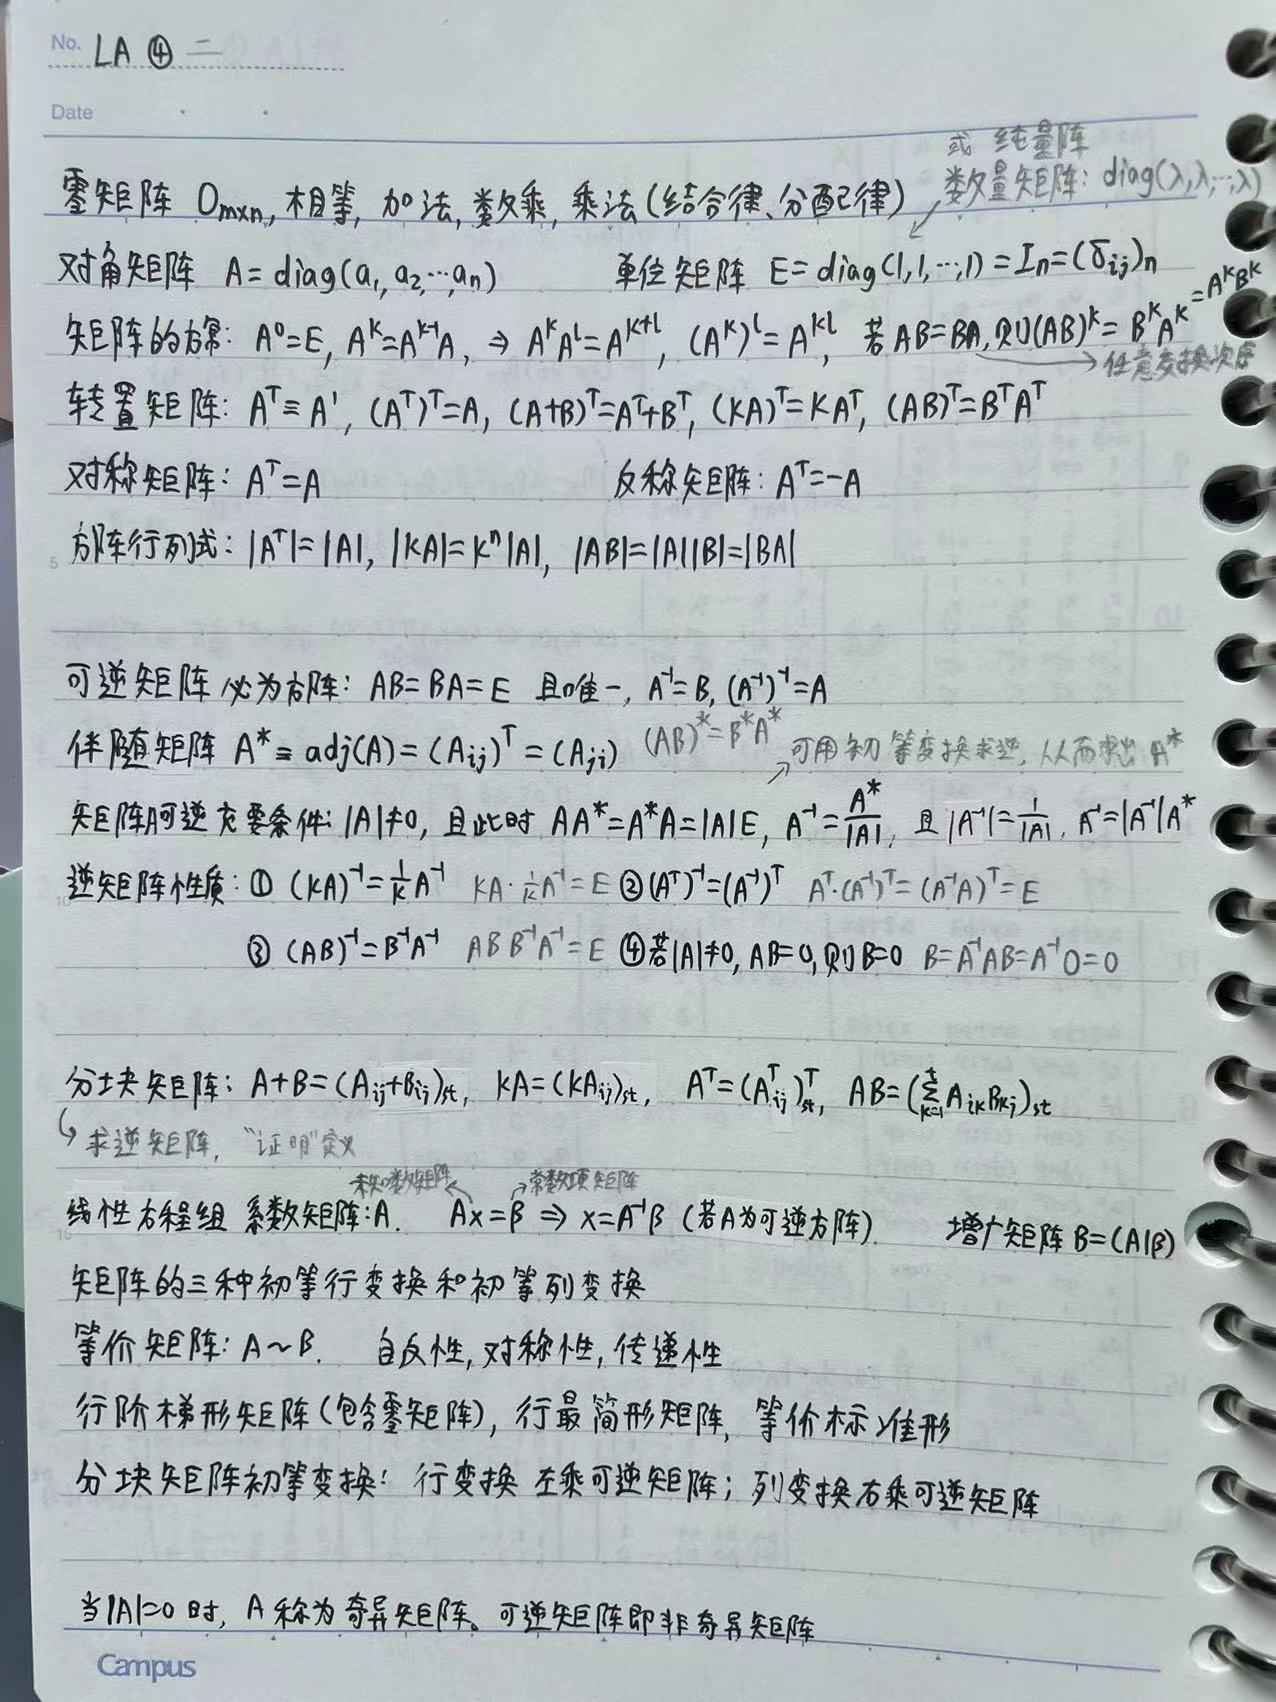 No. LA ④ 二
Date
或 纯量阵
数量矩阵: diag(λ,λ,…,λ)
零矩阵 Oₘₓₙ, 相等, 加法, 数乘, 乘法(结合律、分配律)
对角矩阵 A=diag(a₁,a₂,…,aₙ) 单位矩阵 E=diag(1,1,…,1)=Iₙ=(δᵢⱼ)ₙ
矩阵的方幂: A⁰=E, Aᵏ=Aᵏ⁻¹A, ⇒ AᵏAˡ=Aᵏ⁺ˡ, (Aᵏ)ˡ=Aᵏˡ, 若AB=BA, 则(AB)ᵏ=BᵏAᵏ=AᵏBᵏ
→任意变换次序
转置矩阵: Aᵀ≡A', (Aᵀ)ᵀ=A, (A+B)ᵀ=Aᵀ+Bᵀ, (KA)ᵀ=KAᵀ, (AB)ᵀ=BᵀAᵀ
对称矩阵: Aᵀ=A 反称矩阵: Aᵀ=-A
方阵行列式: |Aᵀ|=|A|, |KA|=Kⁿ|A|, |AB|=|A||B|=|BA|
5
可逆矩阵必为方阵: AB=BA=E 且唯一, A⁻¹=B, (A⁻¹)⁻¹=A
伴随矩阵 A*≡adj(A)=(Aᵢⱼ)ᵀ=(Aⱼᵢ) (AB)*=B*A* 可用初等变换求逆, 从而求出A*
矩阵A可逆充要条件: |A|≠0, 且此时 AA*=A*A=|A|E, A⁻¹=A*/|A|, 且|A⁻¹|=1/|A|, A⁻¹=|A⁻¹|A*
逆矩阵性质: ① (KA)⁻¹=1/K A⁻¹ KA·1/K A⁻¹=E ②(Aᵀ)⁻¹=(A⁻¹)ᵀ Aᵀ·(A⁻¹)ᵀ=(A⁻¹A)ᵀ=E
10
③ (AB)⁻¹=B⁻¹A⁻¹ ABB⁻¹A⁻¹=E ④若|A|≠0, AB=0, 则B=0 B=A⁻¹AB=A⁻¹0=0
分块矩阵: A+B=(Aᵢⱼ+Bᵢⱼ)ₛₜ, KA=(KAᵢⱼ)ₛₜ, Aᵀ=(Aᵢⱼᵀ)ₛₜᵀ, AB=(∑ₖ₌₁ᵗ AᵢₖBₖⱼ)ₛₜ
↳求逆矩阵, "证明"定义
未知数矩阵 常数项矩阵
线性方程组 系数矩阵:A. Ax=β ⇒ x=A⁻¹β (若A为可逆方阵). 增广矩阵B=(A|β)
15
矩阵的三种初等行变换和初等列变换
等价矩阵: A~B. 自反性, 对称性, 传递性
行阶梯形矩阵(包含零矩阵), 行最简形矩阵, 等价标准形
分块矩阵初等变换: 行变换 左乘可逆矩阵; 列变换右乘可逆矩阵
当|A|=0时, A称为奇异矩阵。可逆矩阵即非奇异矩阵
Campus